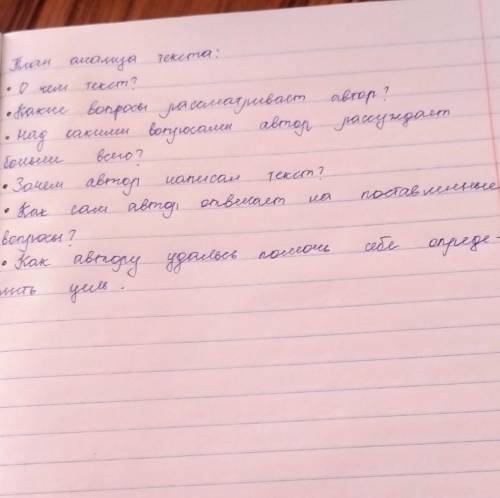 План анализа текста:
• О чем текст?
• Какие вопросы рассматривает автор?
• Над какими вопросами автор рассуждает
больше всего?
• Зачем автор написал текст?
• Как сам автор отвечает на поставленные
вопросы?
• Как автору удалось помочь себе опреде-
лить цель.